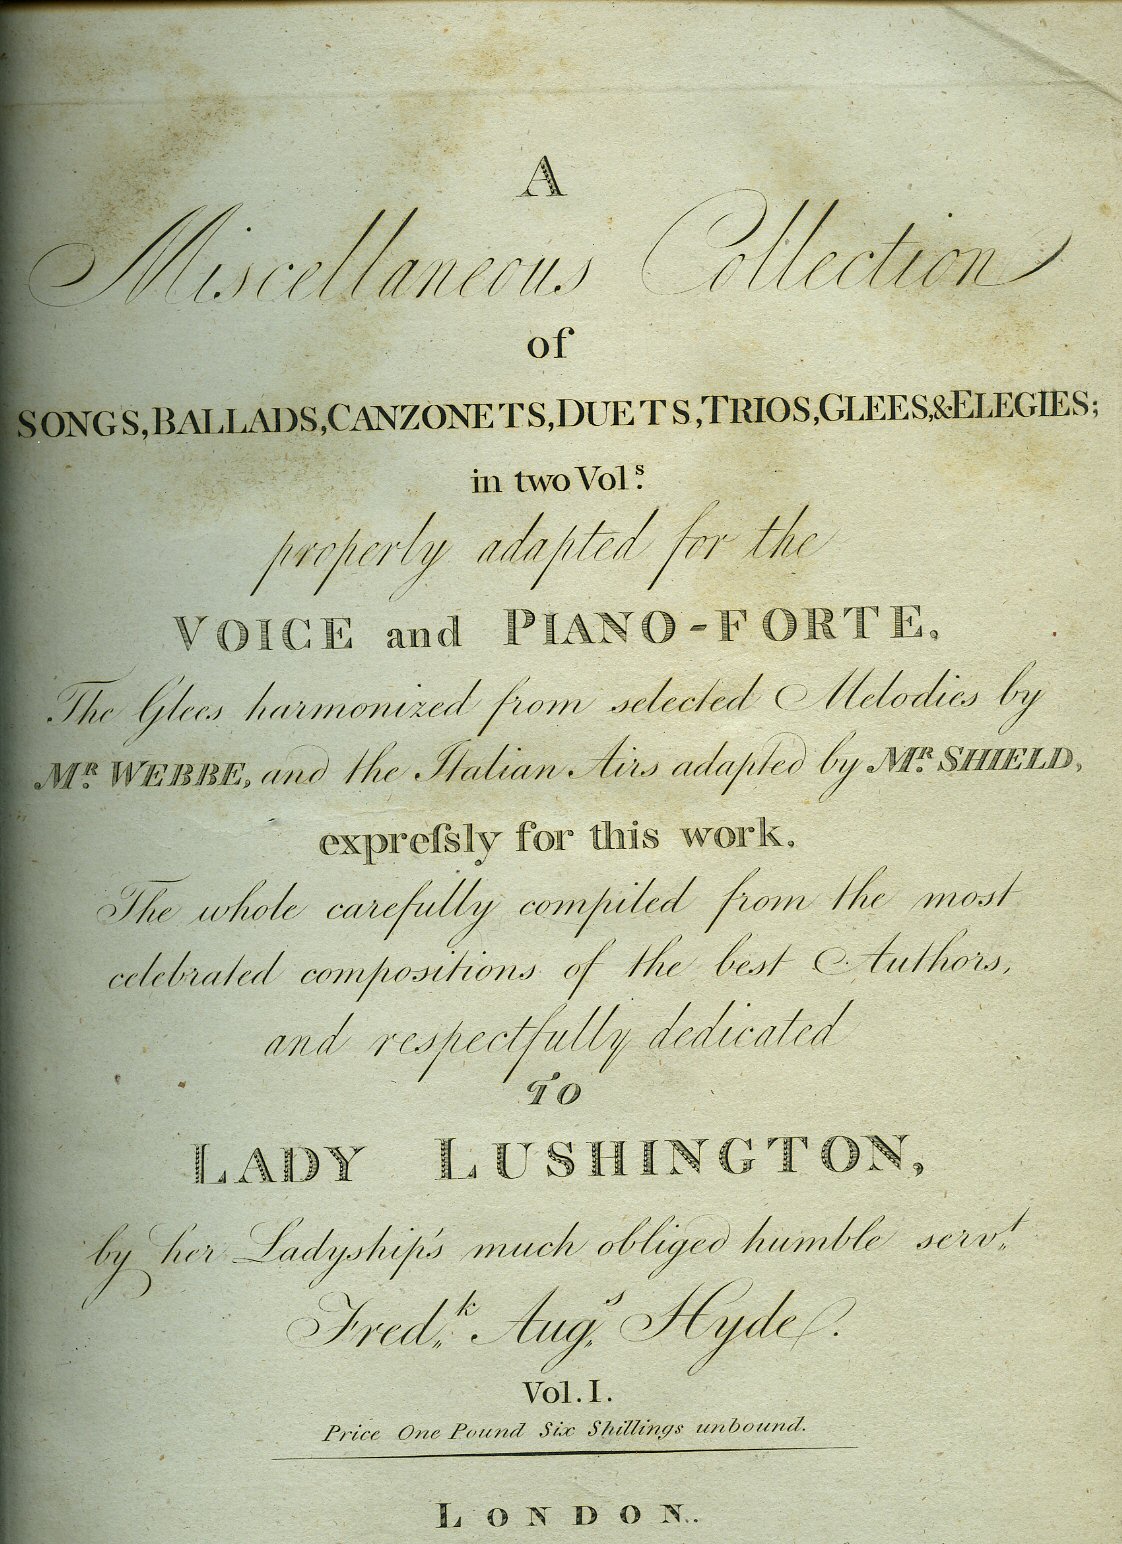 A
Miscellaneous Collection
of
SONGS, BALLADS, CANZONETS, DUETS, TRIOS, GLEES, & ELEGIES;
in two Vol.s
properly adapted for the
VOICE and PIANO-FORTE,
The Glees harmonized from selected Melodies by
Mr. WEBBE, and the Italian Airs adapted by Mr. SHIELD,
expreſsly for this work.
The whole carefully compiled from the most
celebrated compositions of the best Authors,
and respectfully dedicated
TO
LADY LUSHINGTON,
by her Ladyship's much obliged humble serv.t
Fred.k Aug.s Hyde.
Vol. I.
Price One Pound Six Shillings unbound.
LONDON.